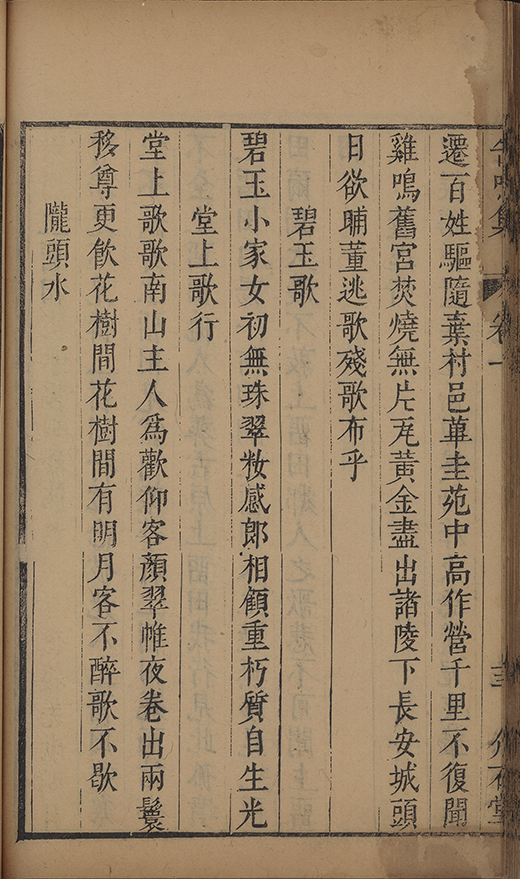 缶鳴集 卷一
遷百姓驅隨棄村邑蓽圭苑中高作營千里不復聞
雞鳴舊宮焚燒無片瓦黃金盡出諸陵下長安城頭
日欲晡董逃歌殘歌布乎
碧玉歌
碧玉小家女初無珠翠籹感郎相顧重朽質自生光
堂上歌行
堂上歌歌南山主人爲歡仰客顏翠帷夜卷出兩鬟
移尊更飲花樹間花樹間有明月客不醉歌不歇
隴頭水